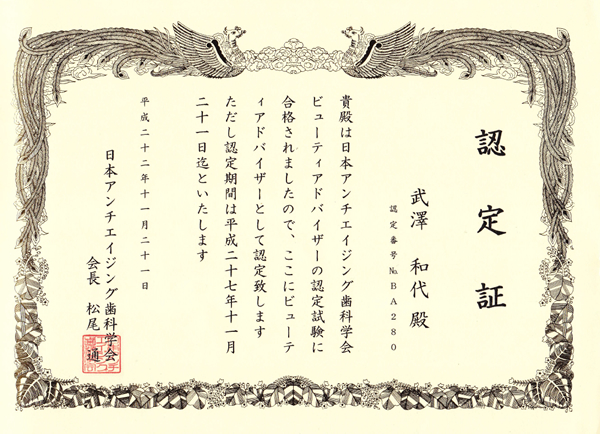 認定証
武澤 和代殿
認定番号 №BA280
貴殿は日本アンチエイジング歯科学会
ビューティアドバイザーの認定試験に
合格されましたので、ここにビューテ
ィアドバイザーとして認定致します
ただし認定期間は平成二十七年十一月
二十一日迄といたします
平成二十二年十一月二十一日
日本アンチエイジング歯科学会
会長 松尾 通